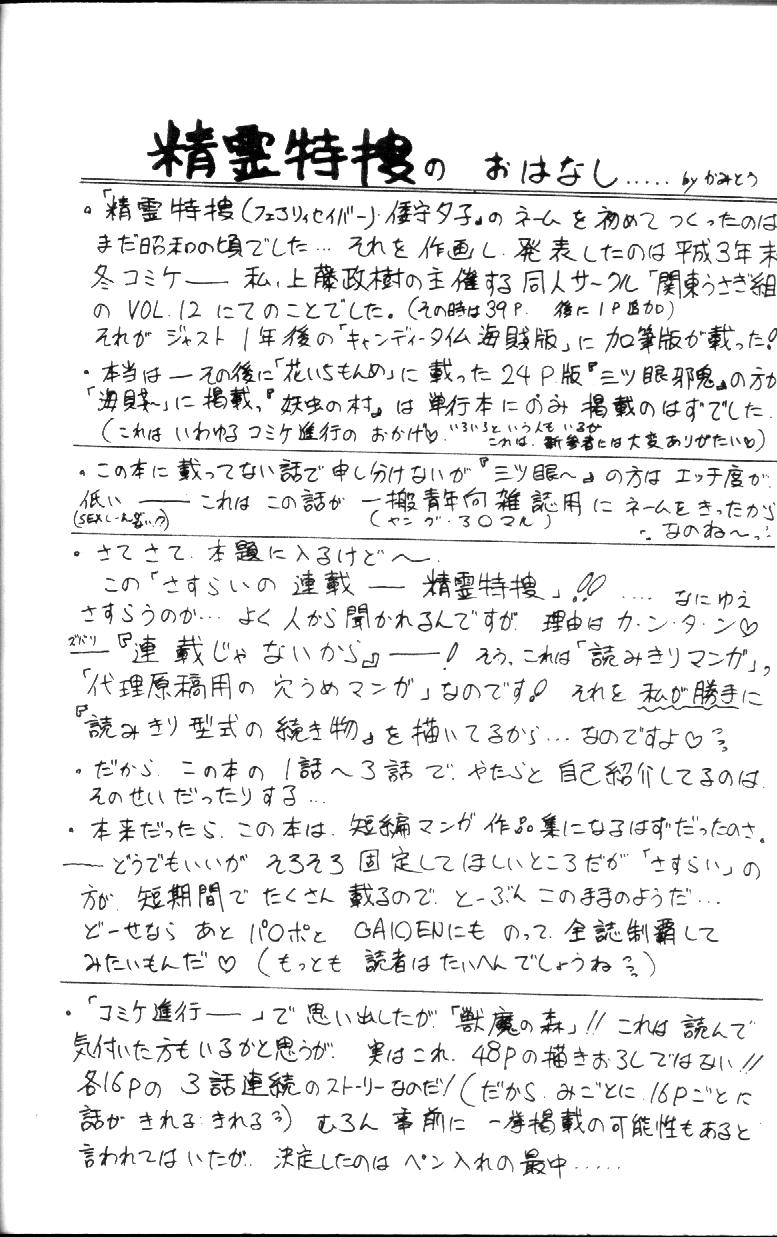 精霊特捜の おはなし..... by かみとう
・「精霊特捜(フェアリィセイバー)・倭守夕子」のネームを初めてつくったのは
まだ昭和の頃でした… それを作画し、発表したのは平成3年末
冬コミケ── 私、上藤政樹の主催する同人サークル「関東うさぎ組
の VOL.12 にてのことでした。(その時は39P. 後に1P追加)
それが ジャスト 1年後の「キャンディータイム海賊版」に 加筆版が載った!
・本当は─その後に「花いちもんめ」に載った24P.版『三ツ眼邪鬼』の方が
「海賊〜」に掲載、『妖虫の村』は 単行本にのみ 掲載のはずでした.
(これは いわゆる コミケ進行の おかげ♡. いろいろという人もいるが
これは、新参者には大変ありがたい♡)
・この本に載ってない話で申し分けないが『三ツ眼〜』の方は エッチ度が.
低い ── これは この話が 一搬青年向雑誌用に ネームをきったから
(ヤング・30マル)
なのね〜..
・さてさて、本題に入るけど〜.
この「さすらいの連載 ── 精霊特捜」!! .... なにゆえ
さすらうのか… よく人から聞かれるんですが、理由は カ・ン・タ・ン♡
ズバリ──『連載じゃないから』──! そう、これは「読みきりマンガ」、
「代理原稿用の 穴うめマンガ」なのです! それを 私が勝手に
『読みきり型式の続き物』を描いてるから… なのですよ♡
・だから、この本の 1話〜3話で、やたらと 自己紹介してるのは
そのせいだったりする…
・本来だったら、この本は、短編マンガ作品集になるはずだったのさ.
── どうでもいいが そろそろ 固定してほしいところだが「さすらい」の
方が 短期間で たくさん 載るので、とーぶん このままのようだ…
どーせなら あと パロポと GAIDENにも のって、全誌制覇して
みたいもんだ♡ (もっとも 読者は たいへんでしょうね)
・「コミケ進行──」で思い出したが、「獣魔の森」!! これは 読んで
気付いた方もいるかと思うが. 実はこれ、48Pの描きおろしではない!!
各16Pの 3話連続のストーリーなのだ! (だから、みごとに、16Pごとに
話が きれる きれる) むろん 事前に 一挙掲載の可能性もあると
言われてはいたが、決定したのは ペン入れの最中.....